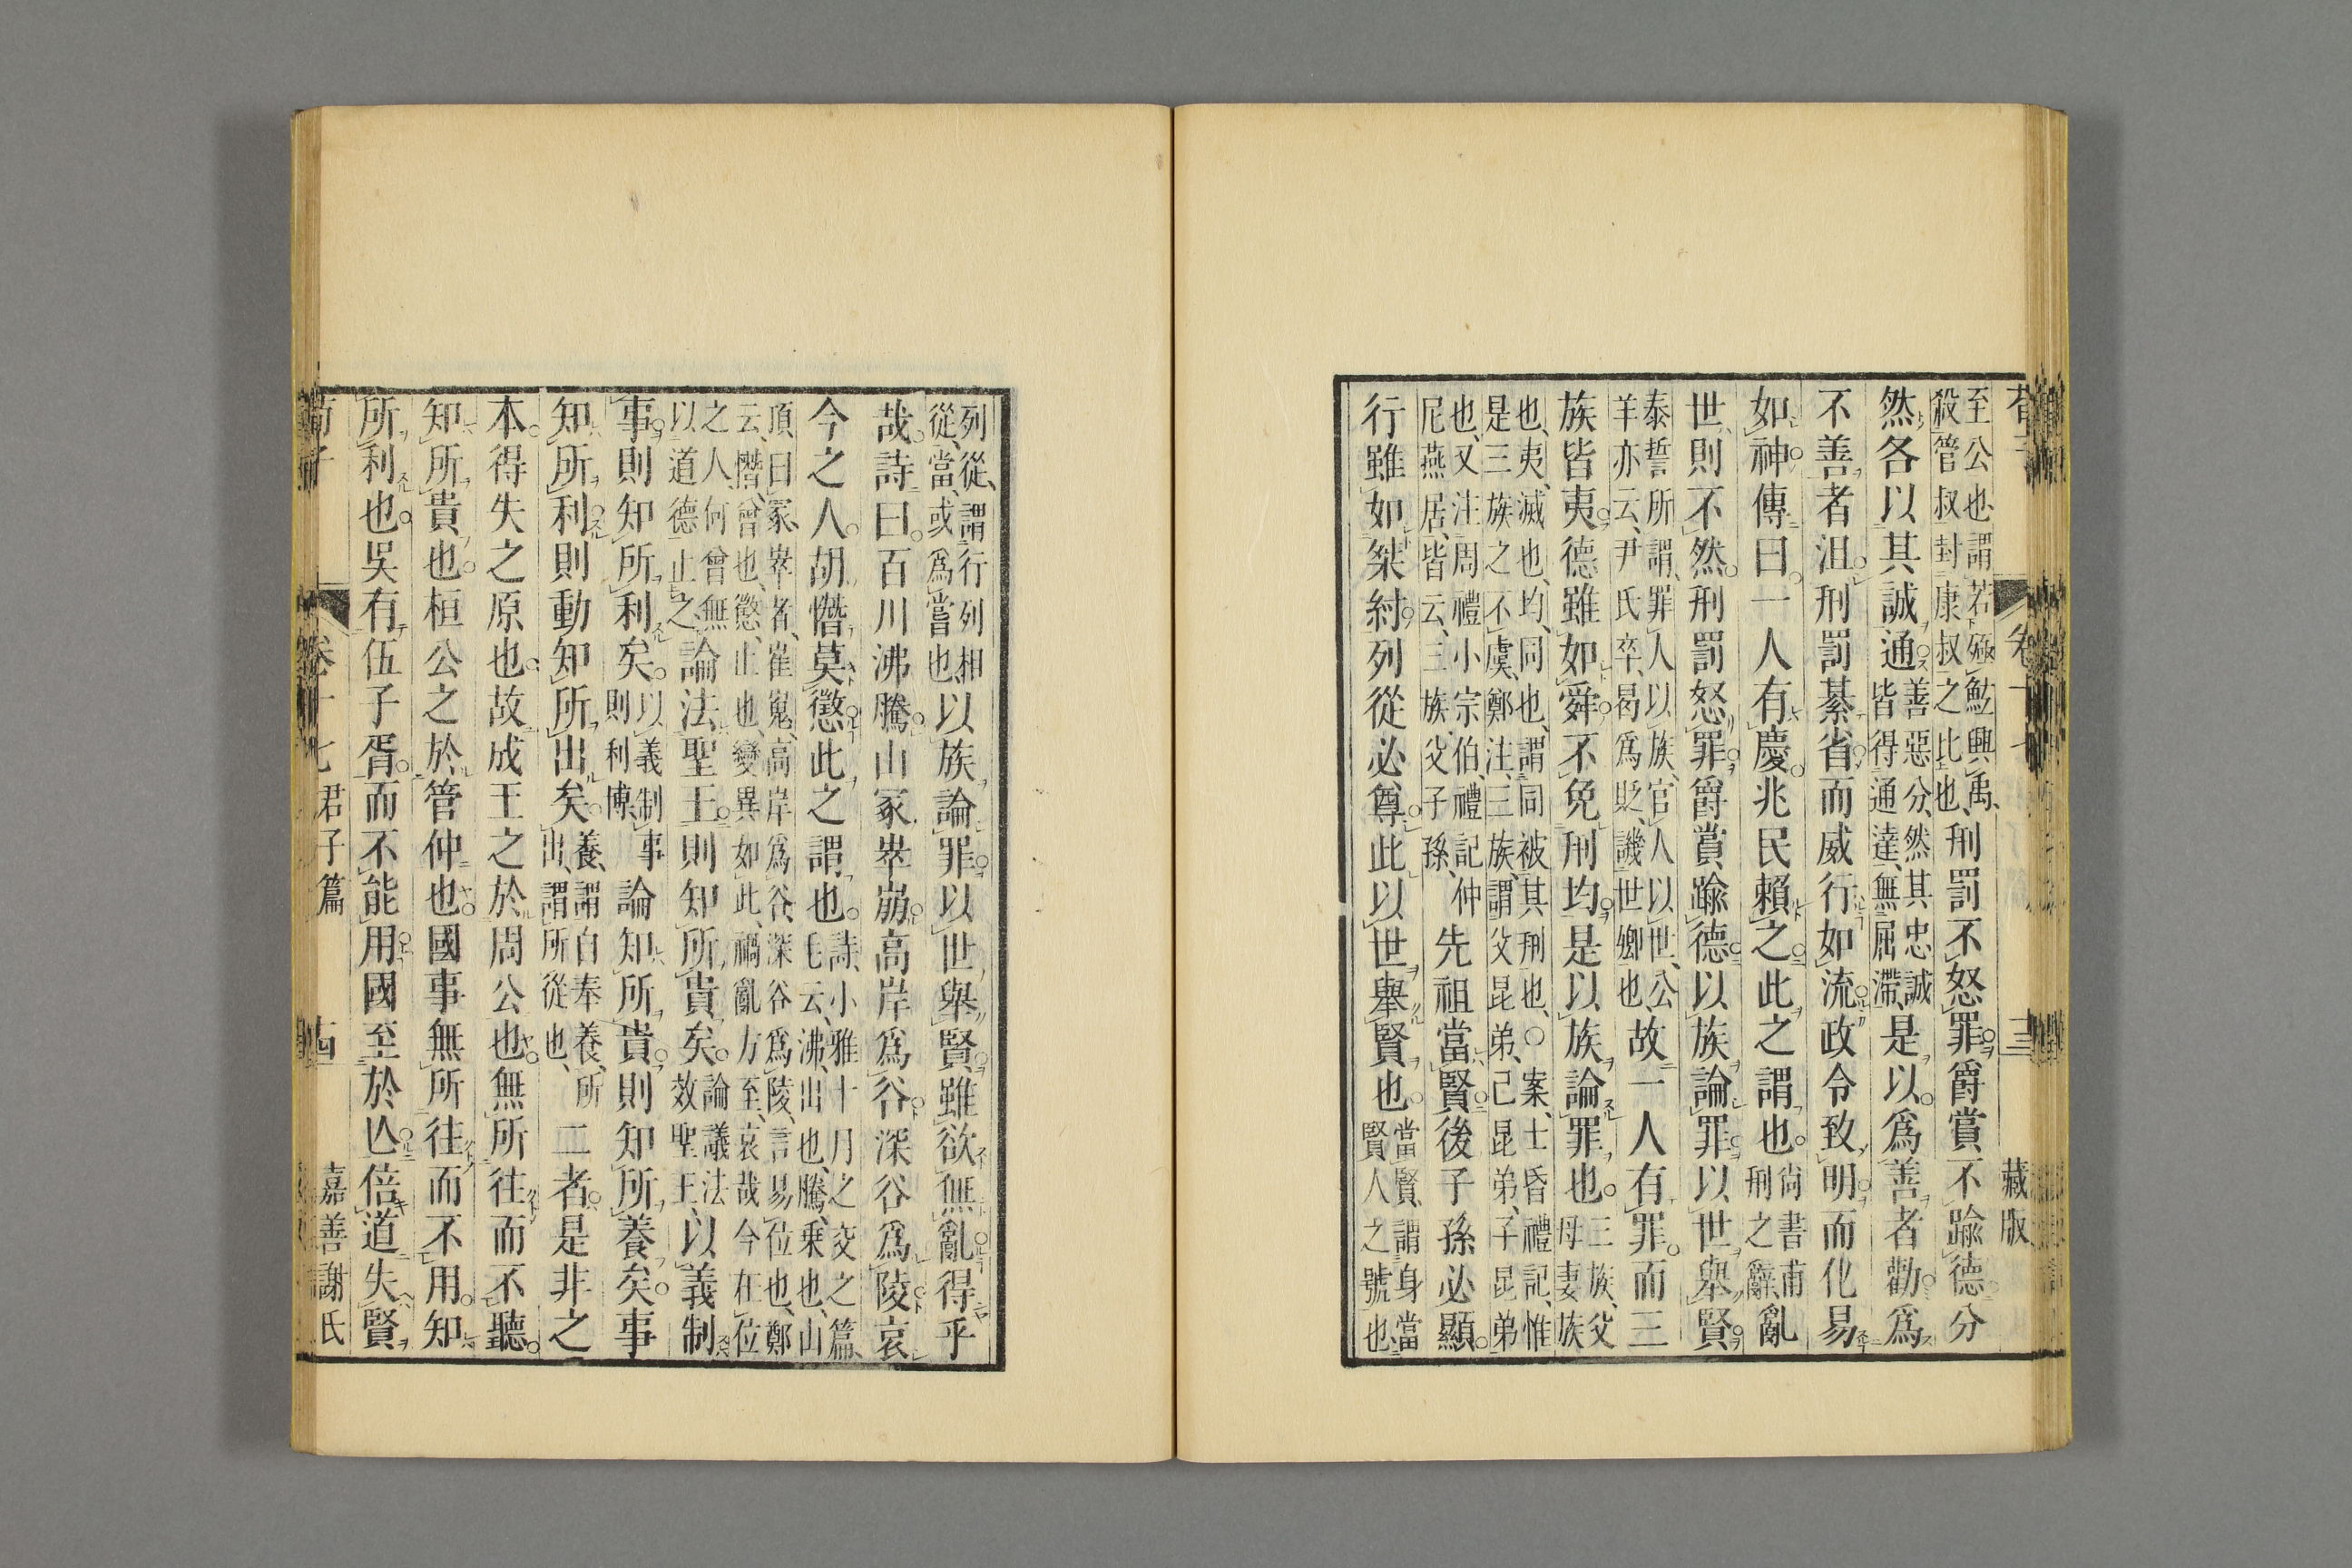 藏版
至公也、謂若殛鯀興禹、
殺管叔封康叔之比也、
刑罰不怒罪爵賞不踰德分
然各以其誠通
善惡分、然其忠誠
皆得通達、無屈滯、
是以爲善者勸爲
不善者沮刑罰綦省而威行如流政令致明而化易
如神傳曰一人有慶兆民賴之此之謂也
尚書甫
刑之辭
亂
世則不然刑罰怒罪爵賞踰德以族論罪以世舉賢
泰誓所謂、罪人以族、官人以世、公
羊亦云、尹氏卒、曷爲貶、譏世卿也、
故一人有罪而三
族皆夷德雖如舜不免刑均是以族論罪也
三族、父
母妻族
也、夷、滅也、均、同也、謂同被其刑也、○案、士昏禮記、惟
是三族之不虞、鄭注、三族、謂父昆弟、己昆弟、子昆弟
也、又注周禮小宗伯、禮記仲
尼燕居、皆云、三族、父子孫、
先祖當賢後子孫必顯
行雖如桀紂列從必尊此以世舉賢也
當賢、謂身當
賢人之號也
列從、謂行列相
從、當、或爲嘗也、
以族論罪以世舉賢雖欲無亂得乎
哉詩曰百川沸騰山冢崒崩高岸爲谷深谷爲陵哀
今之人胡憯莫懲此之謂也
詩、小雅十月之交之篇、
毛云、沸、出也、騰、乗也、山
頂曰冢、崒者、崔嵬、高岸爲谷、深谷爲陵、言易位也、鄭
云、憯、曾也、懲、止也、變異如此、禍亂方至、哀哉今在位
之人、何曾無
以道德止之
論法聖王則知所貴矣
論議法
效聖王、
以義制
事則知所利矣
以義制事
則利博、
論知所貴則知所養矣事
知所利則動知所出矣
養、謂自奉養、所
出、謂所從也、
二者是非之
本得失之原也故成王之於周公也無所往而不聽
知所貴也桓公之於管仲也國事無所往而不用知
所利也吳有伍子胥而不能用國至於亾倍道失賢
荀子 卷十七 君子篇 十四 嘉善謝氏